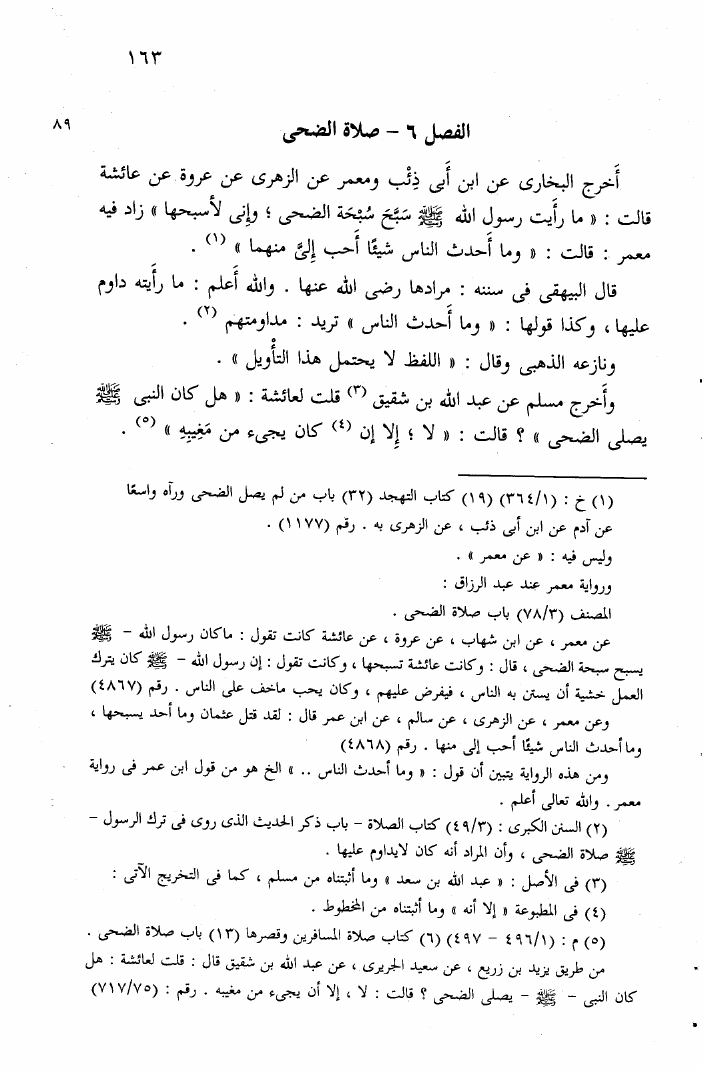 ١٦٣
٨٩
الفصل ٦ – صلاة الضحى
أَخرج البخارى عن ابن أَبى ذِئْب ومعمر عن الزهرى عن عروة عن عائشة
قالت : « ما رأَيت رسول الله ﷺ سَبَّحَ سُبْحَة الضحى ؛ وإِنى لأُسبحها » زاد فيه
معمر : قالت : « وما أَحدث الناس شيئًا أَحب إِلىَّ منهما » (١) .
قال البيهقى فى سننه : مرادها رضى الله عنها . والله أَعلم : ما رأَيته داوم
عليها ، وكذا قولها : « وما أَحدث الناس » تريد : مداومتهم (٢) .
ونازعه الذهبى وقال : « اللفظ لا يحتمل هذا التأْويل » .
وأَخرج مسلم عن عبد الله بن شقيق (٣) قلت لعائشة : « هل كان النبى ﷺ
يصلى الضحى » ؟ قالت : « لا ؛ إِلا إن (٤) كان يجىء من مَغِيبِهِ » (٥) .
(١) خ : (٣٦٤/١) (١٩) كتاب التهجد (٣٢) باب من لم يصل الضحى ورآه واسعًا
عن آدم عن ابن أبى ذئب ، عن الزهرى به . رقم (١١٧٧) .
وليس فيه : « عن معمر » .
ورواية معمر عند عبد الرزاق :
المصنف (٧٨/٣) باب صلاة الضحى .
عن معمر ، عن ابن شهاب ، عن عروة ، عن عائشة كانت تقول : ماكان رسول الله – ﷺ
يسبح سبحة الضحى ، قال : وكانت عائشة تسبحها ، وكانت تقول : إن رسول الله – ﷺ كان يترك
العمل خشية أن يستن به الناس ، فيفرض عليهم ، وكان يحب ماخف على الناس . رقم (٤٨٦٧)
وعن معمر ، عن الزهرى ، عن سالم ، عن ابن عمر قال : لقد قتل عثمان وما أحد يسبحها ،
وما أحدث الناس شيئًا أحب إلى منها . رقم (٤٨٦٨)
ومن هذه الرواية يتبين أن قول : « وما أحدث الناس .. » الخ هو من قول ابن عمر فى رواية
معمر . والله تعالى أعلم .
(٢) السنن الكبرى : (٤٩/٣) كتاب الصلاة – باب ذكر الحديث الذى روى فى ترك الرسول –
ﷺ صلاة الضحى ، وأن المراد أنه كان لايداوم عليها .
(٣) فى الأصل : « عبد الله بن سعد » وما أثبتناه من مسلم ، كما فى التخريج الآتى :
(٤) فى المطبوعة « إلا أنه » وما أثبتناه من المخطوط .
(٥) م : (٤٩٦/١ – ٤٩٧) (٦) كتاب صلاة المسافرين وقصرها (١٣) باب صلاة الضحى .
من طريق يزيد بن زريع ، عن سعيد الجريرى ، عن عبد الله بن شقيق قال : قلت لعائشة : هل
كان النبى – ﷺ – يصلى الضحى ؟ قالت : لا ، إلا أن يجىء من مغيبه . رقم : (٧١٧/٧٥)